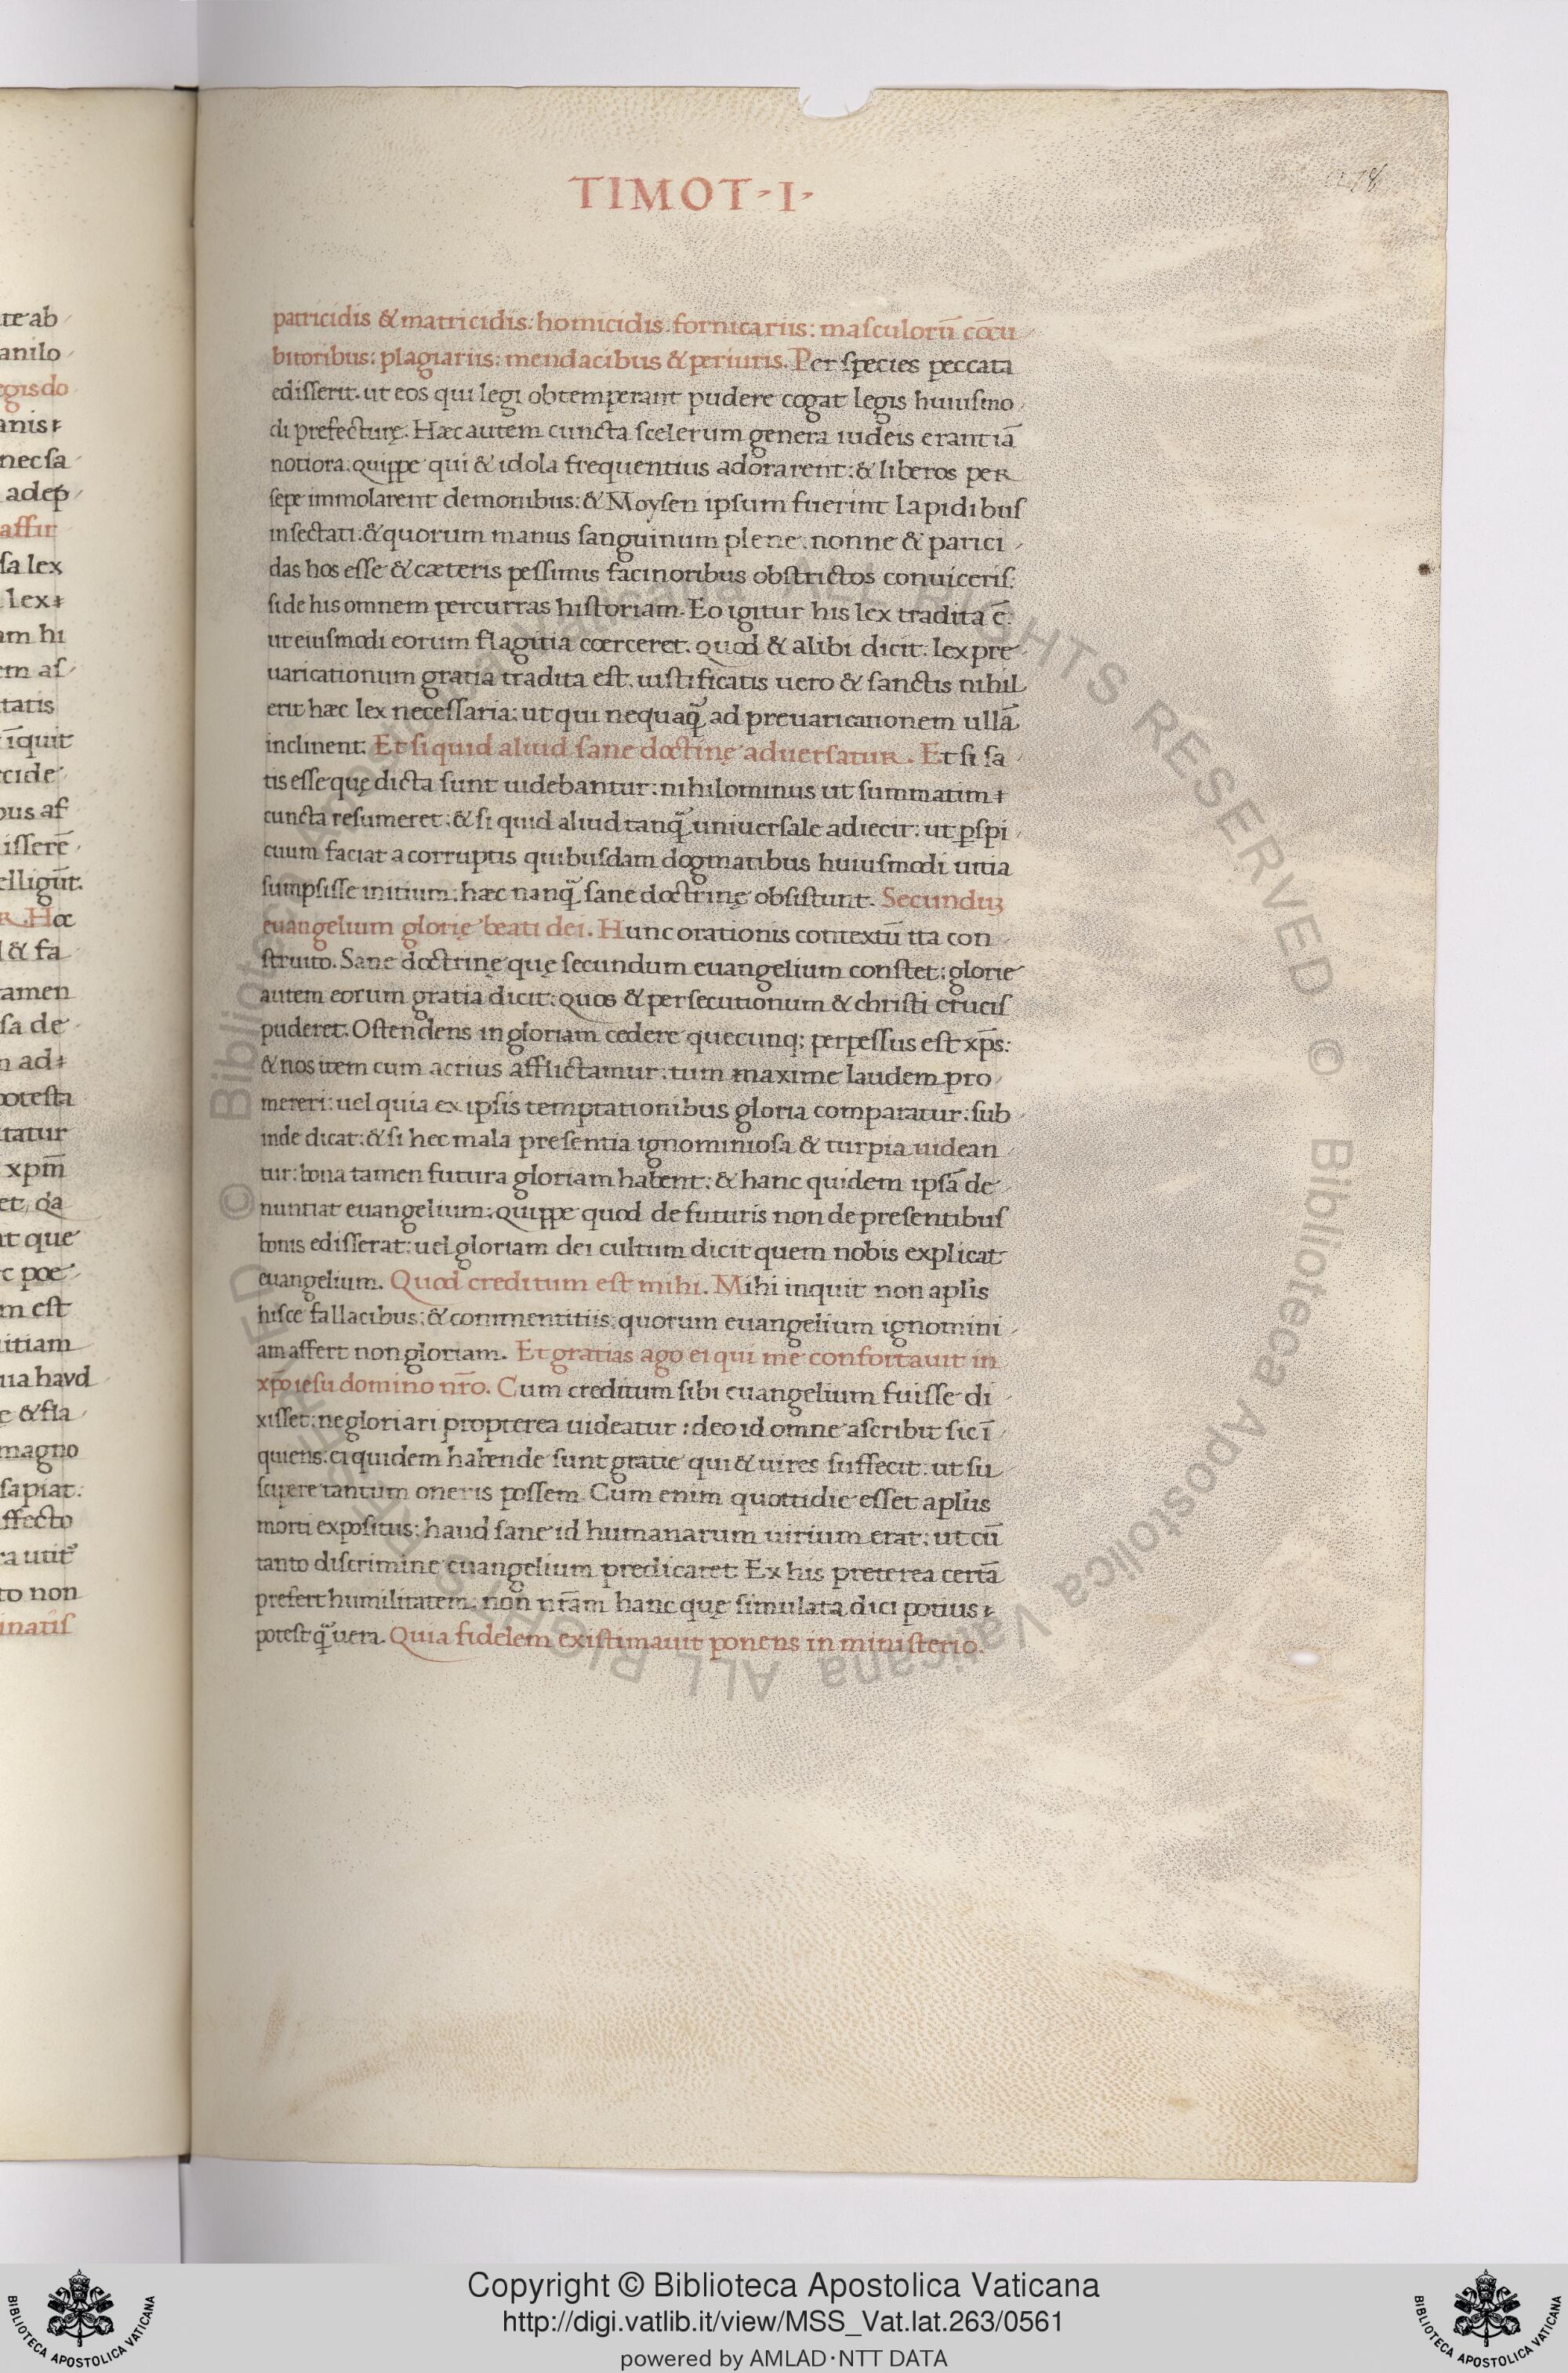 TIMOT·I·
278
patricidis & matricidis: homicidis: fornicariis: masculorū cōcu
bitoribus: plagiariis: mendacibus & periuris. Per species peccata
edisserit. ut eos qui legi obtemperant pudere cogat legis huiusmo
di prefecturę. Hæc autem cuncta scelerum genera iudeis erant iā
notiora: quippe qui & idola frequentius adorarent: & liberos per
sepe immolarent demonibus: & Moysen ipsum fuerint lapidibus
insectati: & quorum manus sanguinum plene. nonne & parici
das hos esse & cæteris pessimis facinoribus obstrictos conuiceris:
si de his omnem percurras historiam. Eo igitur his lex tradita ē:
ut eiusmodi eorum flagitia cœrceret. quod & alibi dicit: lex pre
uaricationum gratia tradita est. iustificatis uero & sanctis nihil
erit hæc lex necessaria: ut qui nequaq̃ ad preuaricationem ullā
inclinent. Et si quid aliud sane doctinę aduersatur. Et si sa
tis esse quę dicta sunt uidebantur: nihilominus ut summatim
cuncta resumeret: & si quid aliud tanq̃ uniuersale adiecit: ut p̱spi
cuum faciat a corruptis quibusdam dogmatibus huiusmodi uitia
sumpsisse initium: hæc nanq̃ sane doctrinę obsistunt. Secunduꝫ
euangelium glorię beati dei. Hunc orationis contextū ita con
struito. Sane doctrinę quę secundum euangelium constet: glorie
autem eorum gratia dicit: quos & persecutionum & christi crucis
puderet. Ostendens in gloriam cedere quecunq; perpessus est xp̄s:
& nos item cum acrius afflictamur: tum maxime laudem pro
mereri: uel quia ex ipsis temptationibus gloria comparatur: sub
inde dicat: & si hec mala presentia ignominiosa & turpia uidean
tur: bona tamen futura gloriam habent: & hanc quidem ipsā de
nuntiat euangelium: quippe quod de futuris non de presentibus
bonis edisserat: uel gloriam dei cultum dicit quem nobis explicat
euangelium. Quod creditum est mihi. Mihi inquit non aplis
hisce fallacibus: & commentitiis: quorum euangelium ignomini
am affert non gloriam. Et gratias ago ei qui me confortauit in
xp̄o iesu domino nr̄o. Cum creditum sibi euangelium fuisse di
xisset: ne gloriari propterea uideatur: deo id omne ascribit sic ī
quiens: ei quidem habende sunt gratie qui & uires suffecit: ut su
scipere tantum oneris possem. Cum enim quottidie esset aplus
morti expositus: haud sane id humanarum uirium erat: ut cū
tanto discrimine euangelium predicaret. Ex his preterea certā
prefert humilitatem: non nr̄am hanc quę simulata dici potius
potest q̃ uera. Quia fidelem existimauit ponens in ministerio.
© Biblioteca Apostolica Vaticana ALL RIGHTS RESERVED
Copyright © Biblioteca Apostolica Vaticana
http://digi.vatlib.it/view/MSS_Vat.lat.263/0561
powered by AMLAD·NTT DATA
BIBLIOTECA APOSTOLICA VATICANA
BIBLIOTECA APOSTOLICA VATICANA